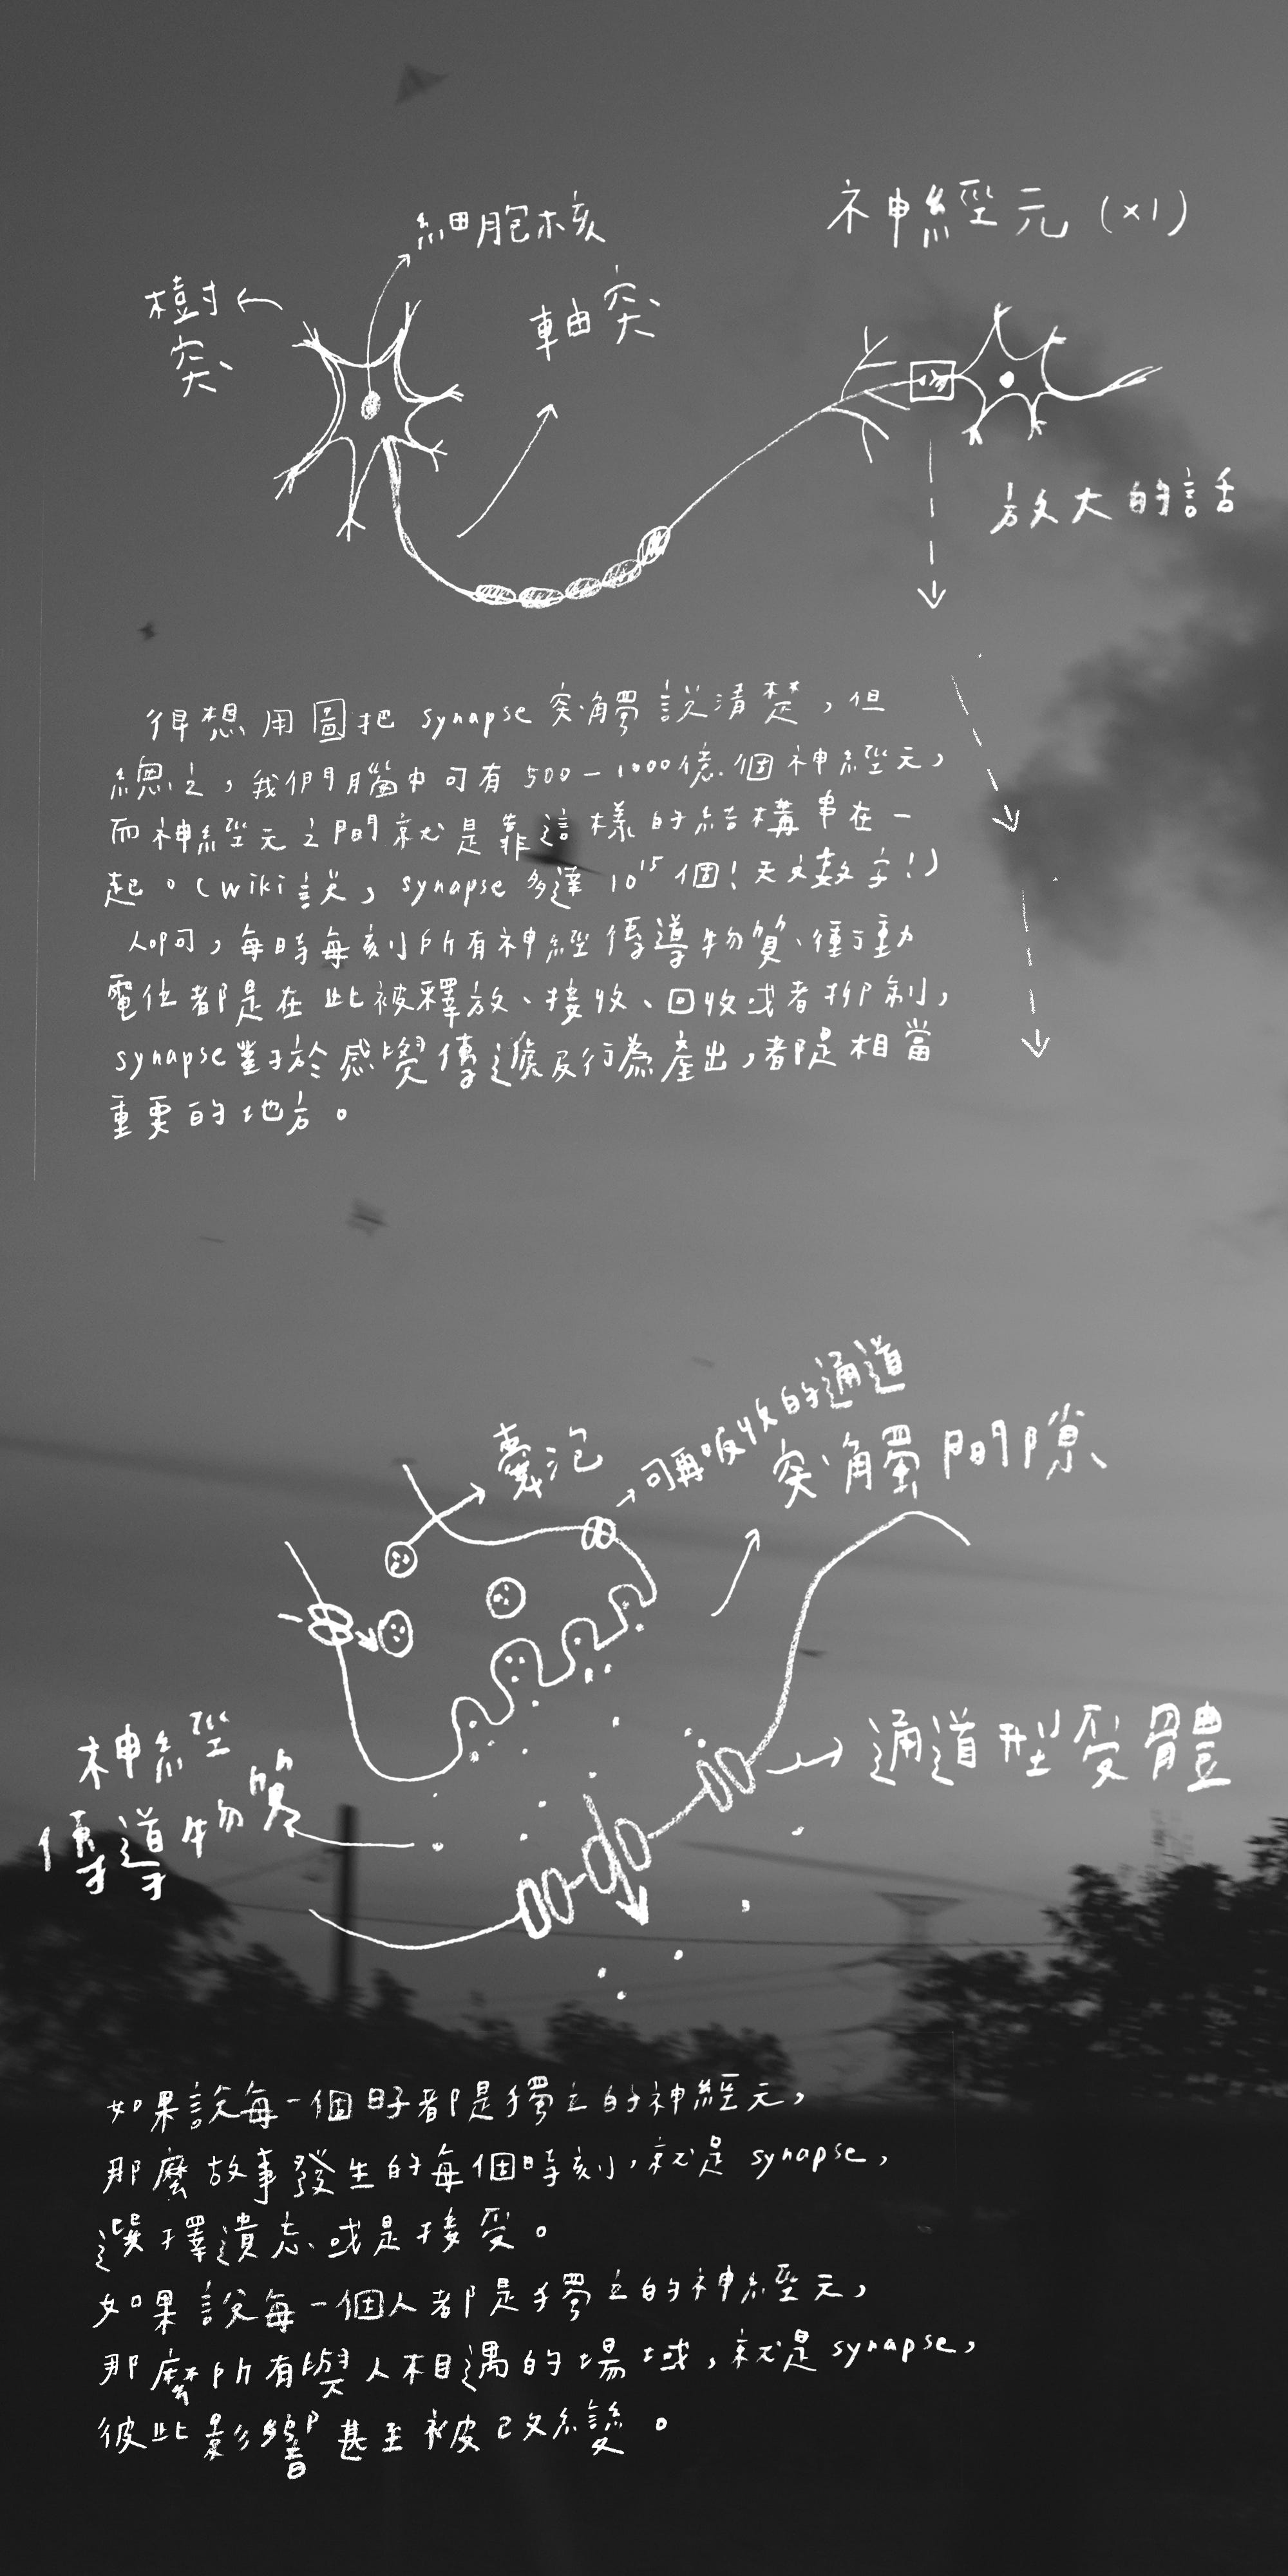 神經元 (×1)
細胞核
樹突
軸突
放大的話
很想用圖把 synapse 突觸說清楚，但
總之，我們腦中可有 500－1000億個神經元，
而神經元之間就是靠這樣的結構串在一
起。(Wiki說，synapse 多達 10¹⁵ 個！天文數字！)
人啊，每時每刻所有神經傳導物質、衝動
電位都是在此被釋放、接收、回收或者抑制，
synapse對於感覺傳遞及行為產出，都是相當
重要的地方。
可再吸收的通道
囊泡
突觸間隙
通道型受體
神經
傳導物質
如果說每一個日子都是獨立的神經元，
那麼故事發生的每個時刻，就是 synapse，
選擇遺忘或是接受。
如果說每一個人都是獨立的神經元，
那麼所有與人相遇的場域，就是synapse，
彼此影響甚至被改變。